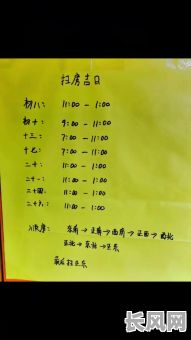 扫房吉日
初八: 11:00 - 1:00
初十: 9:00 - 11:00
十三: 7:00 - 11:00
十七: 7:00 - 11:00
二十: 11:00 - 1:00
二十一: 11:00 - 1:00
二十四: 11:00 - 1:00
二十六: 11:00 - 1:00
顺序: 东南 → 正南 → 西南 → 正西 → 西北
正北 → 东北 → 正东
最后扫正东
长风网